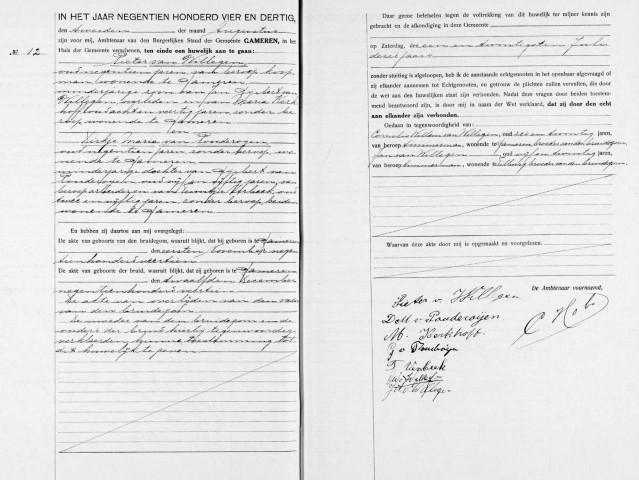 IN HET JAAR NEGENTIEN HONDERD VIER EN DERTIG,
den tweeden der maand Augustus
zijn voor mij, Ambtenaar van den Burgerlijken Stand der Gemeente GAMEREN, in het
Huis der Gemeente verschenen, ten einde een huwelijk aan te gaan:
№ 12
Pieter van Willigen
oud negentien jaren, van beroep koop
man wonende te Gameren
minderjarige zoon van Gijsbert van
Willigen, overleden en van Maria Kerk
hoff oud acht en veertig jaren, zonder be
roep wonende te Gameren
en
Dirkje Maria van Pouderoijen
oud negentien jaren, zonder beroep wo
nende te Gameren
minderjarige dochter van Gijsbert van
Pouderoijen oud vijf en vijftig jaren, van
beroep arbeider en van
en vijftig jaren, zonder beroep, beiden
wonende te Gameren
En hebben zij daartoe aan mij overgelegd:
De akte van geboorte van den bruidegom, waaruit blijkt, dat hij geboren is te Gameren
den eersten November negen
tienhonderd veertien
De akte van geboorte der bruid, waaruit blijkt, dat zij geboren is te Gameren
den twaalfden December
negentienhonderd veertien
De akte van overlijden van den vader
van den bruidegom.
De moeder van den bruidegom en de
ouders der bruid hierbij tegenwoordig
verklaarden hunne toestemming tot
dit huwelijk te geven.
Daar geene beletselen tegen de voltrekking van dit huwelijk ter mijner kennis zijn
gebracht en de afkondiging in deze Gemeente
op Zaterdag, een en twintigsten Juli
dezes jaars
zonder stuiting is afgeloopen, heb ik de aanstaande echtgenooten in het openbaar afgevraagd of
zij elkander aannemen tot Echtgenooten, en getrouw de plichten zullen vervullen, die door
de wet aan den huwelijken staat zijn verbonden. Nadat deze vragen door beiden toestem-
mend beantwoord zijn, is door mij in naam der Wet verklaard, dat zij door den echt
aan elkander zijn verbonden.
Gedaan in tegenwoordigheid van:
Cornelis Willem van Willigen, oud zes en twintig jaren,
van beroep timmerman, wonende te Gameren broeder van den bruidegom
Jan van Willigen, oud vijf en twintig jaren,
van beroep timmerman, wonende te broeder van den bruidegom
Waarvan deze akte door mij is opgemaakt en voorgelezen.
De Ambtenaar voornoemd,
Pieter v. Willigen
D M v Pouderoijen
M. Kerkhoff
G v Pouderoijen